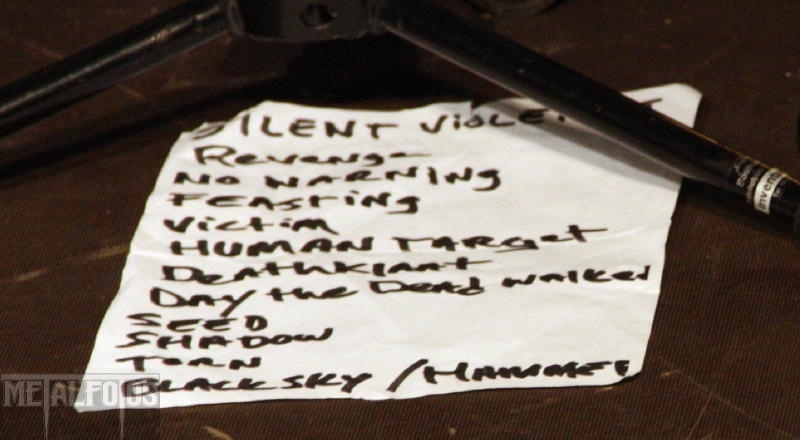 SILENT VIOLE
Revenge
NO WARNING
FEASTING
Victim
HUMAN TARGET
Deathklaat
DAY the Dead WALKED
SEED
SHADOW
TORN
BLACKSKY / HAMMER
METALFOTOS